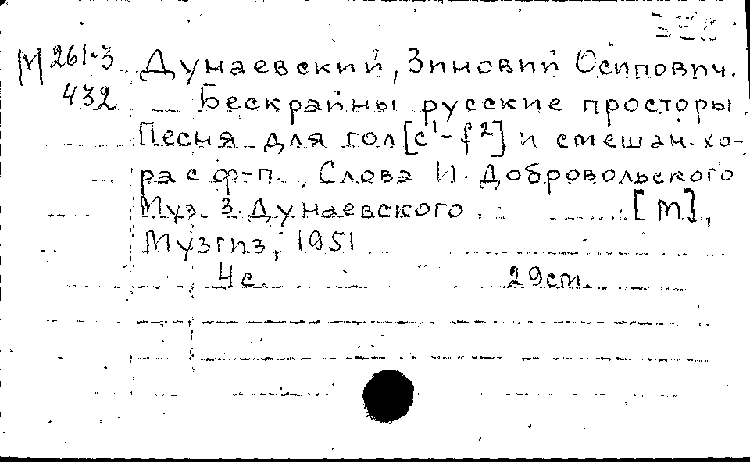 М 261-3 Дунаевский, Зиновий Осипович.
432 — Бескрайны русские просторы
Песня для гол [c¹-f²] и смешан. хо-
ра с ф-п. Слова И. Добровольского
Муз. З. Дунаевского. [М],
Музгиз, 1951
4с. 29см.